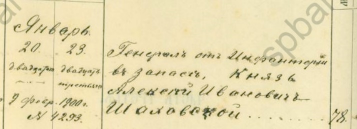 Январь.
20. 23.
двадцатаго двадцать третьяго
9 февр. 1900 г.
№ 4293.
Генералъ отъ Инфантеріи
въ запасѣ, Князь
Алексѣй Ивановичъ
Шаховской 78.
spbar